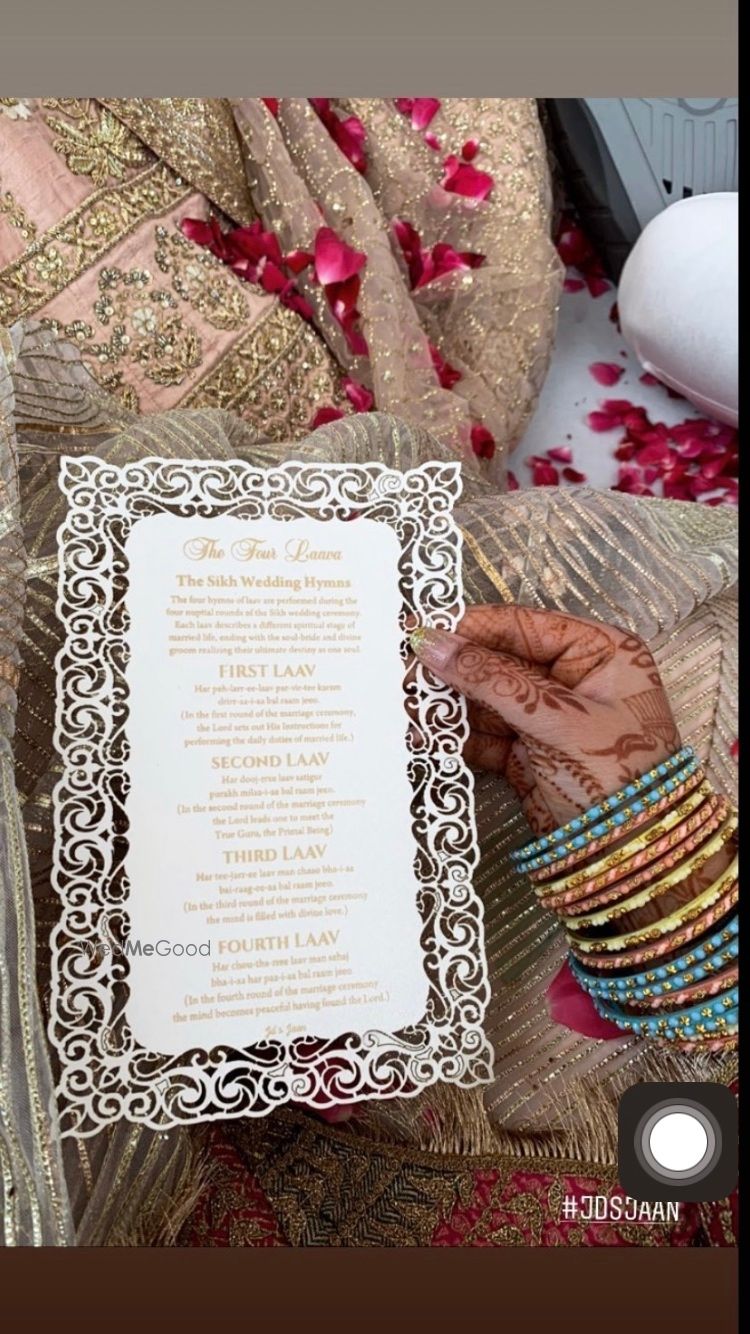 The Four Laava
The Sikh Wedding Hymns
The four hymns of laav are performed during the
four nuptial rounds of the Sikh wedding ceremony.
Each laav describes a different spiritual stage of
married life, ending with the soul-bride and divine
groom realizing their ultimate destiny as one soul.
FIRST LAAV
Har peh-larr-ee-laav par-vir-tee karam
drirr-aa-i-aa bal raam jeeo.
(In the first round of the marriage ceremony,
the Lord sets out His Instructions for
performing the daily duties of married life.)
SECOND LAAV
Har dooj-rree laav satigur
purakh milaa-i-aa bal raam jeeo.
(In the second round of the marriage ceremony
the Lord leads one to meet the
True Guru, the Primal Being)
THIRD LAAV
Har tee-jarr-ee laav man chaao bha-i-aa
bai-raag-ee-aa bal raam jeeo.
(In the third round of the marriage ceremony
the mind is filled with divine love.)
FOURTH LAAV
Har chou-tha-rree laav man sehaj
bha-i-aa har paa-i-aa bal raam jeeo.
(In the fourth round of the marriage ceremony
the mind becomes peaceful having found the Lord.)
Jd's Jaan
WedMeGood
#JDSJAAN